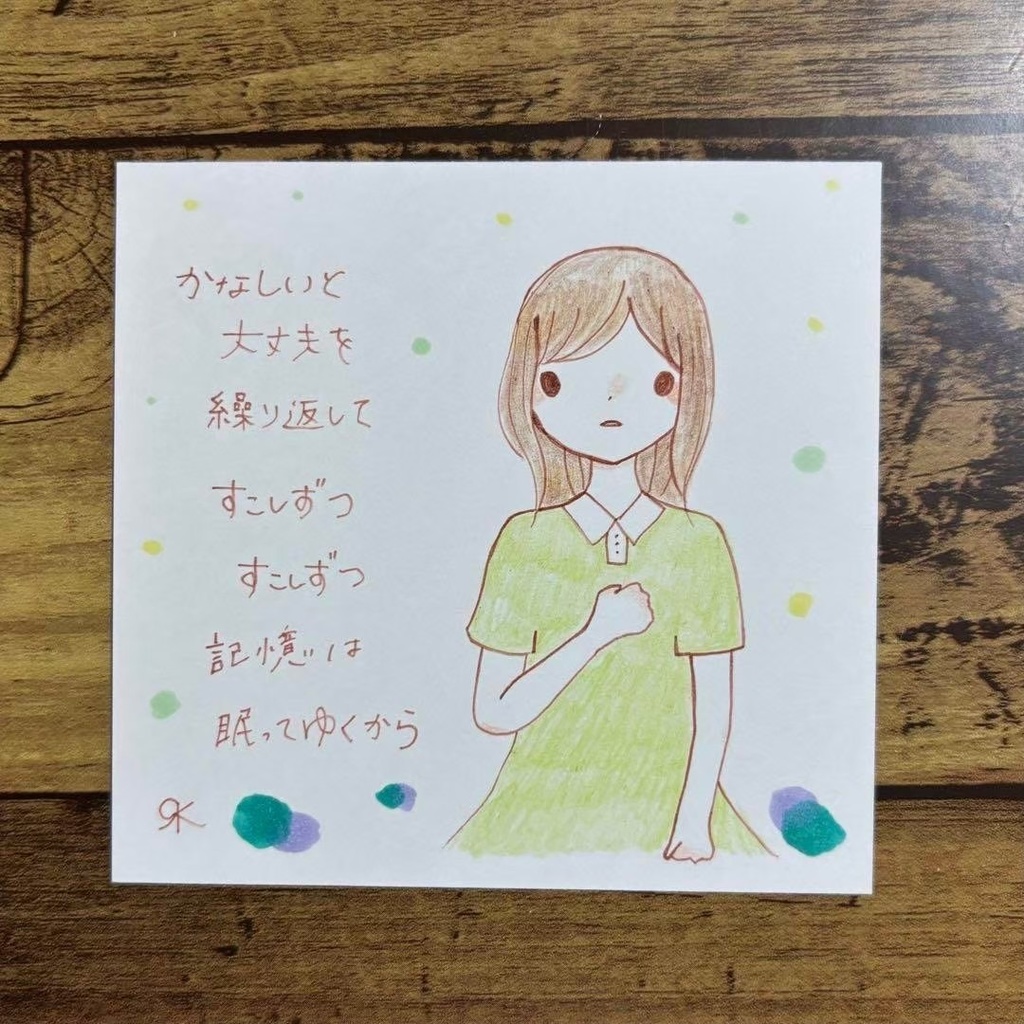 かなしいと
大丈夫を
繰り返して
すこしずつ
すこしずつ
記憶は
眠ってゆくから